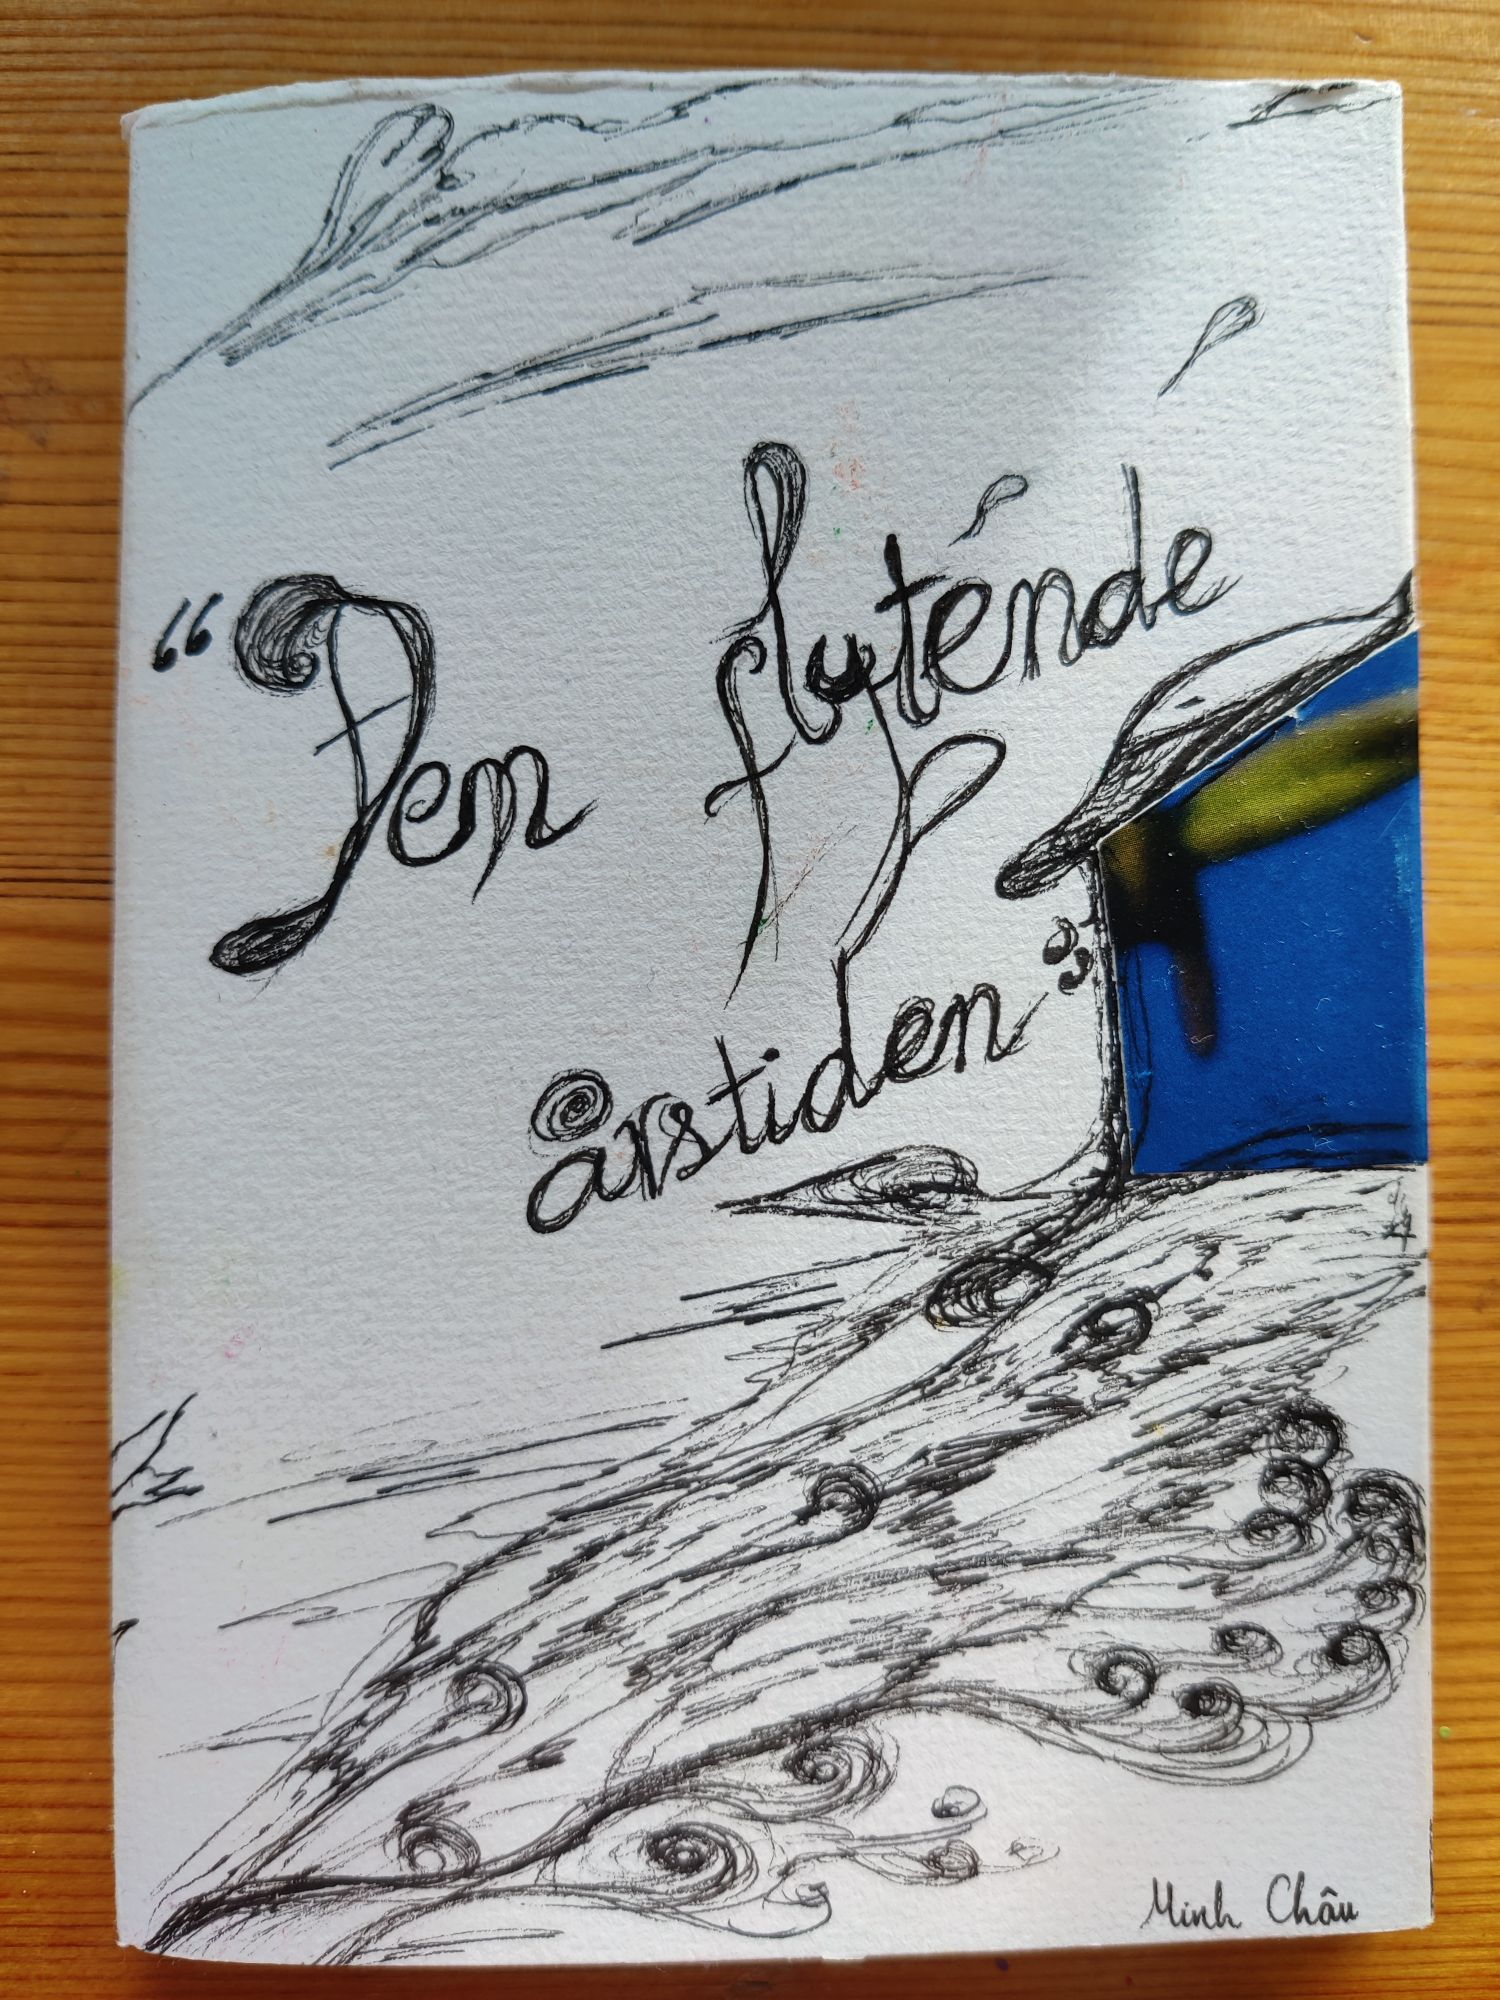 “Den flytende
årstiden”
Minh Châu